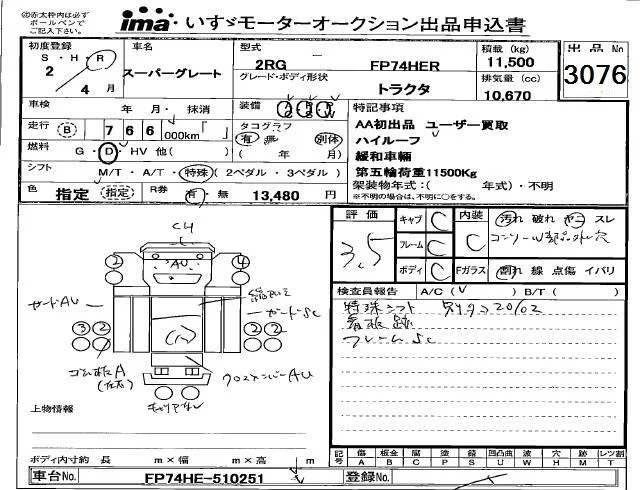 ㊟赤太枠内は必ず
ボールペンで
ご記入下さい。
ima いすゞモーターオークション出品申込書
初度登録 S・H・R 2年 4月
車名 スーパーグレート
型式 2RG FP74HER
グレード・ボディ形状 トラクタ
積載 (kg) 11,500
排気量 (cc) 10,670
出品 No 3076
車検 年 月・抹消
装備 AC PS PW
走行 B 7 6 6 000km「 」
タコグラフ 有・無 別体
( 年 月)
燃料 G・D・HV 他( )
シフト M/T・A/T・特殊(2ペダル・3ペダル)
色 指定 (指定) R券 有・無 13,480 円
特記事項
AA初出品 ユーザー買取
ハイルーフ
緩和車輛
第五輪荷重11500Kg
架装物年式:( 年式)・不明
※不明の場合は、不明に○をする。
評価 3.5
キャブ C
フレーム C
ボディ C
内装 C
汚れ 破れ ヤニ スレ
Fガラス 割れ 線 点傷 イバリ
検査員報告 A/C(V ) B/T( )
特殊シフト
看板跡
フレームSC
CH
AU
2 4
ガードAU
ガードSC
3 2 2 2
クロスメンバーAU
上物情報
ボディ内寸約 長 m×幅 m×高 m
記号 傷A 板金B 腐C 塗P 錆S 凹凸曲U 波W 穴H 跡M レツ割T
車台No. FP74HE-510251
登録No.